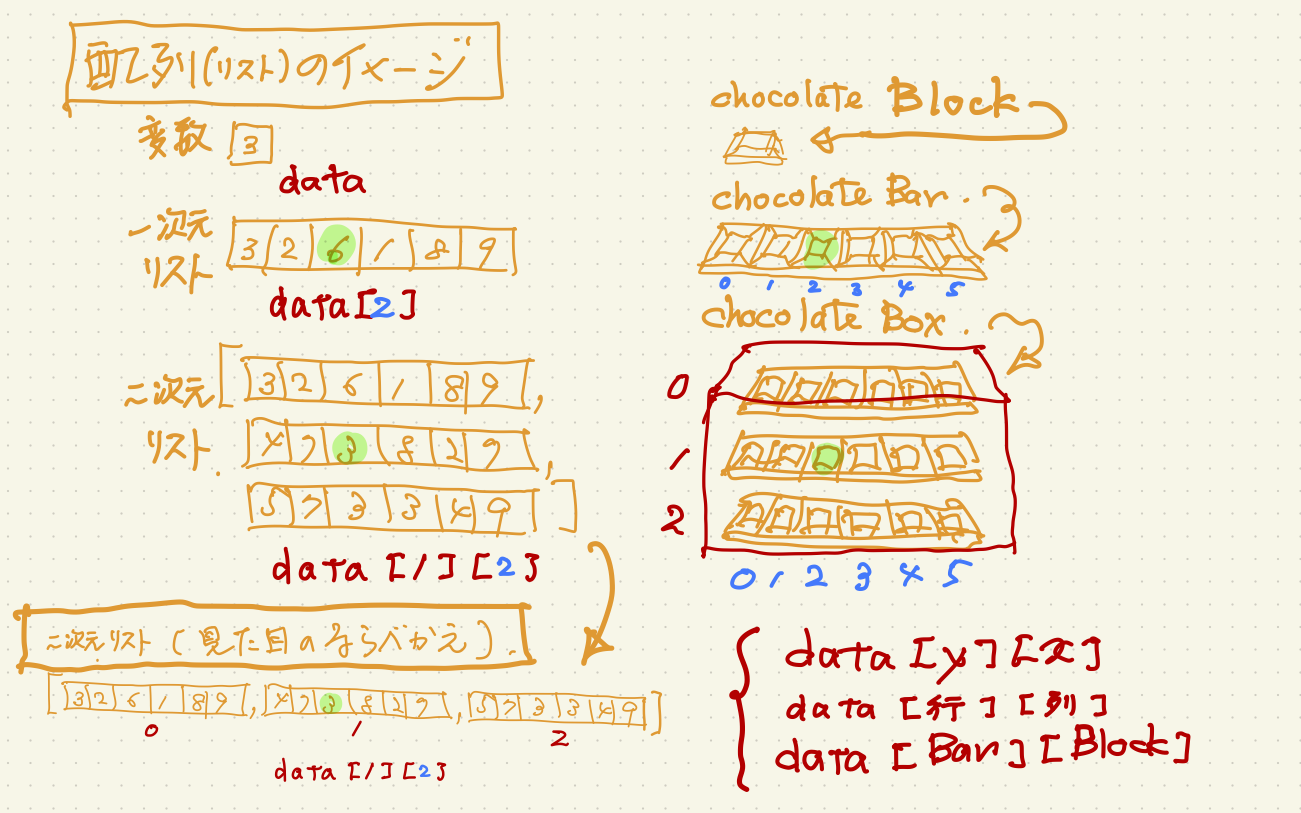 配列(リスト)のイメージ
変数 3
data
一次元
リスト
3 2 6 1 8 9
data[2]
二次元
リスト.
[ 3 2 6 1 8 9 ,
4 7 3 8 2 9 ,
5 7 3 3 4 9 ]
data [1][2]
二次元リスト (見た目のならべかえ).
[ 3 2 6 1 8 9 , 4 7 3 8 2 9 , 5 7 3 3 4 9 ]
0 1 2
data [1][2]
chocolate Block
chocolate Bar.
0 1 2 3 4 5
chocolate Box.
0
1
2
0 1 2 3 4 5
data [y][x]
data [行][列]
data [Bar][Block]